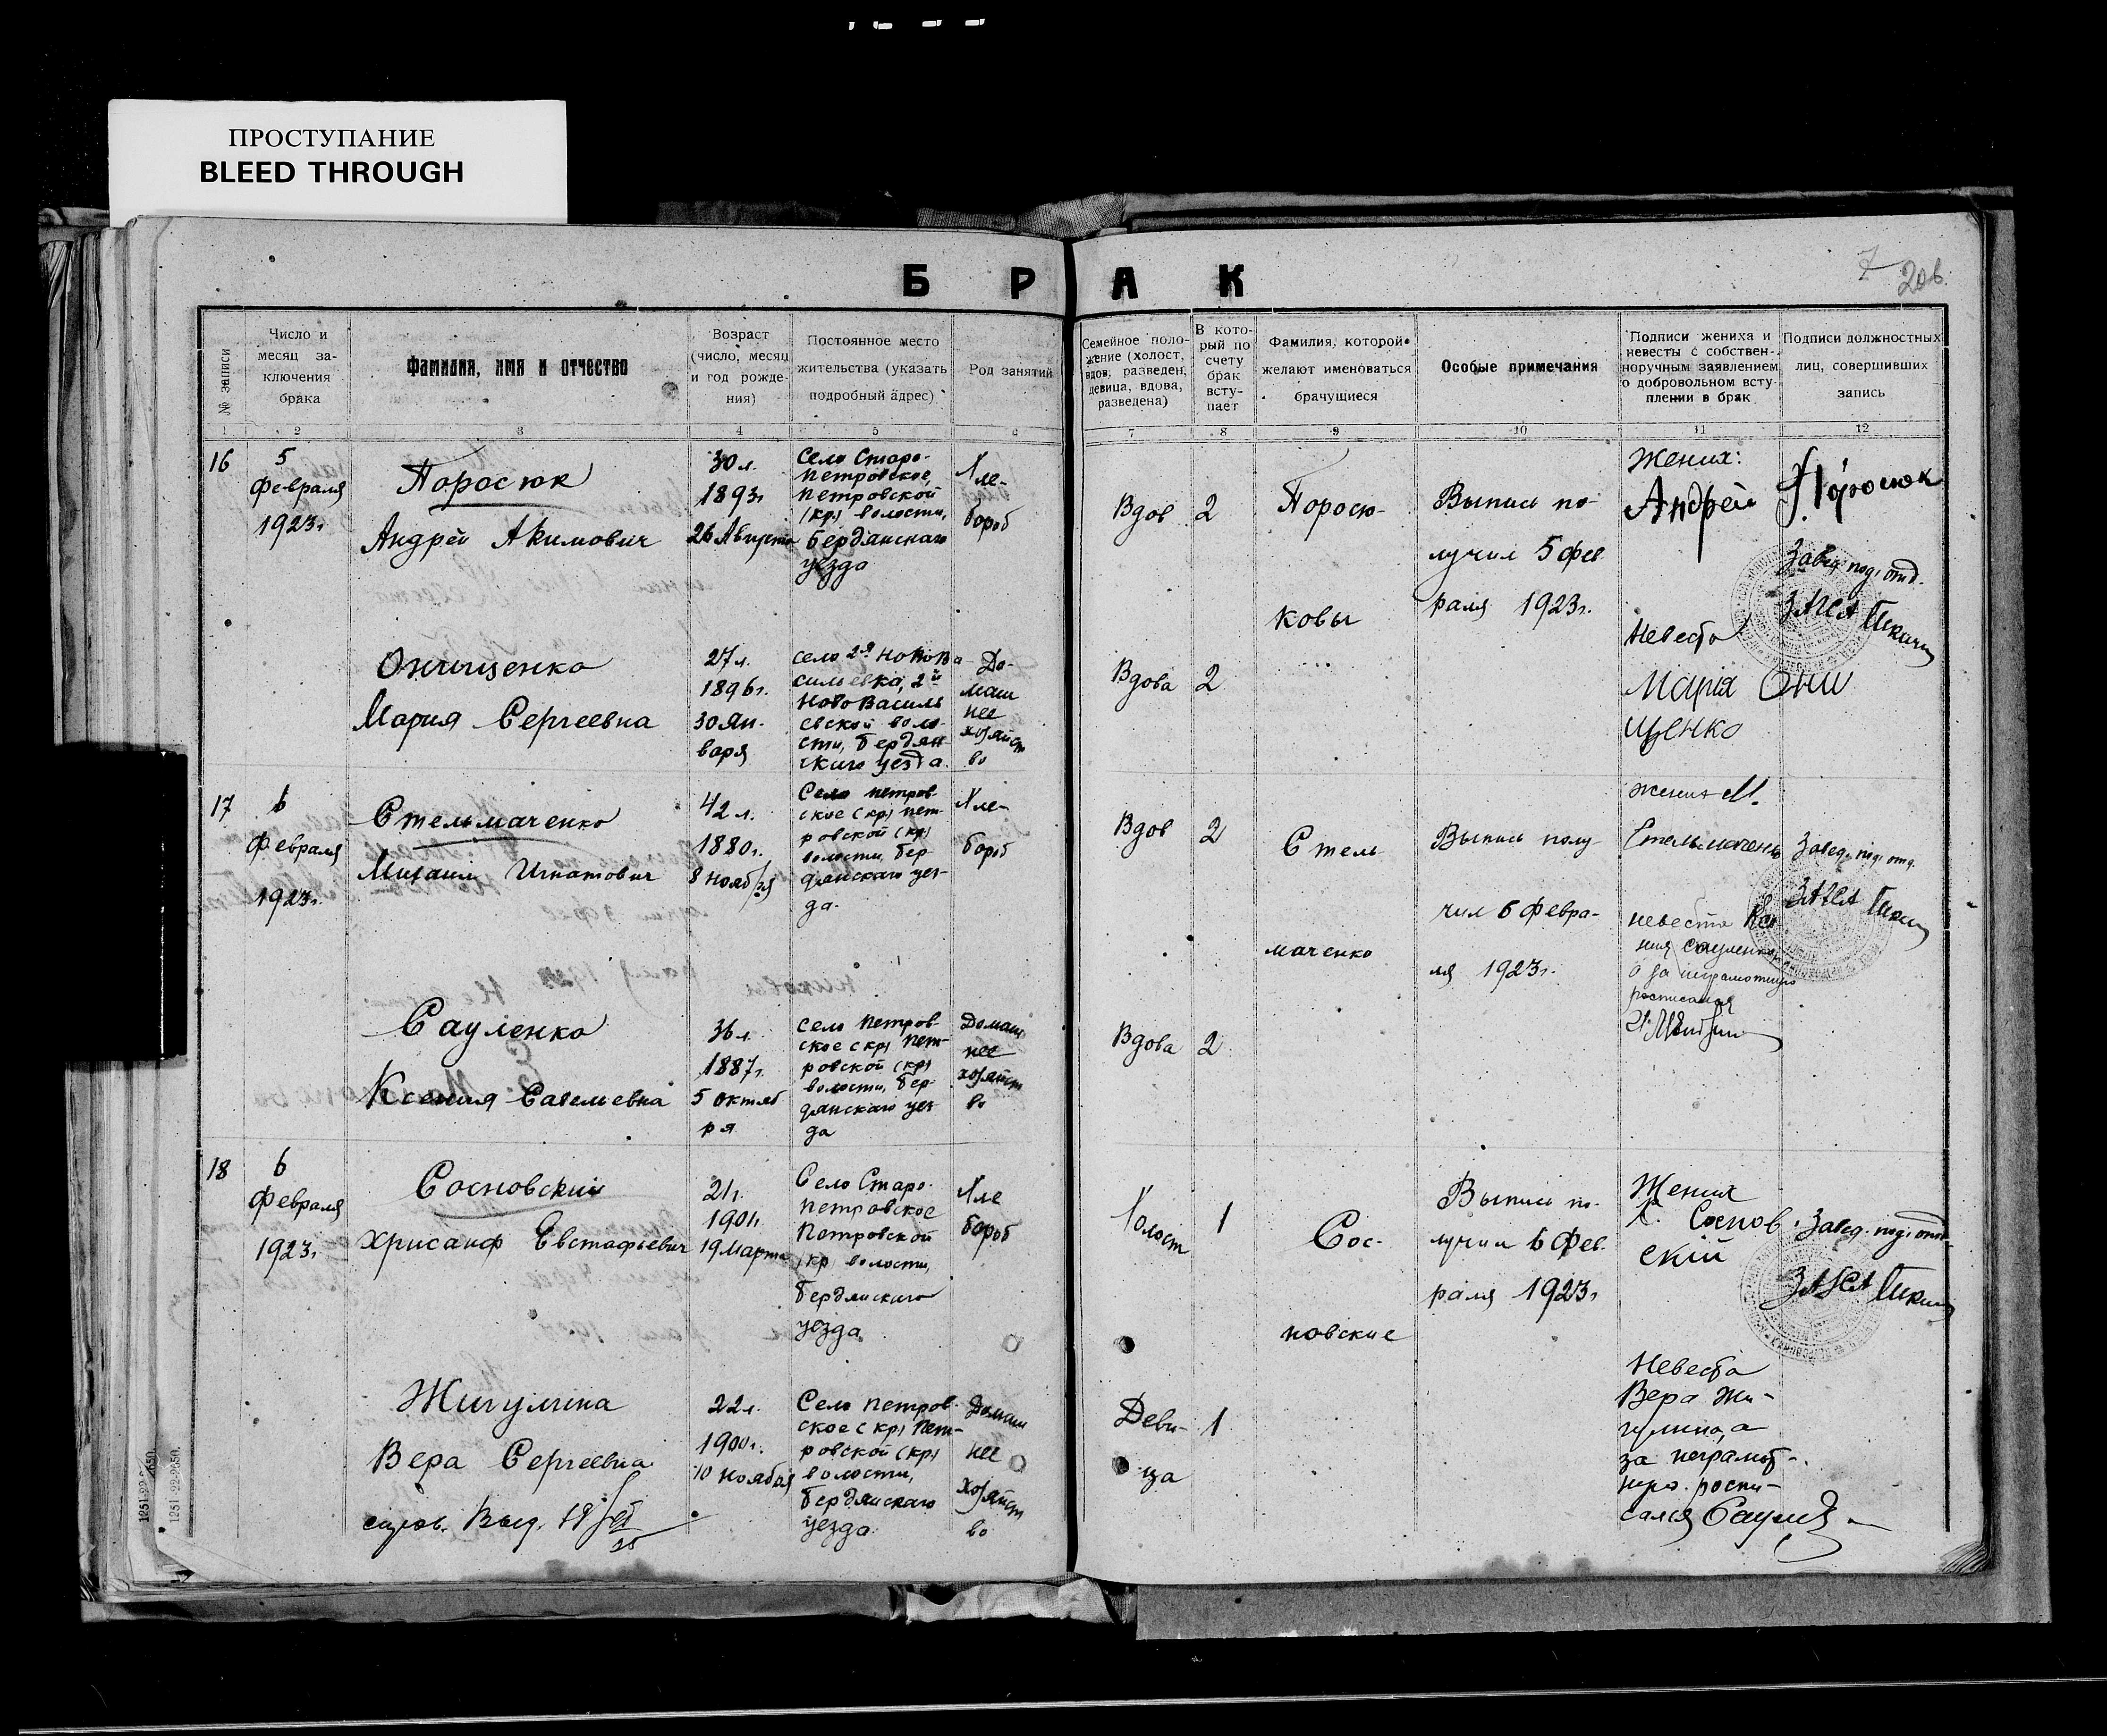 ПРОСТУПАНИЕ
BLEED THROUGH
БРАК
7 20б.
№ записи
Число и
месяц за-
ключения
брака
Фамилия, имя и отчество
Возраст
(число, месяц
и год рожде-
ния)
Постоянное место
жительства (указать
подробный адрес)
Род занятий
Семейное поло-
жение (холост,
вдов, разведен,
девица, вдова,
разведена)
В кото-
рый по
счету
брак
всту-
пает
Фамилия, которой
желают именоваться
брачущиеся
Особые примечания
Подписи жениха и
невесты с собствен-
норучным заявлением
о добровольном всту-
плении в брак
Подписи должностных
лиц, совершивших
запись
1 2 3 4 5 6 7 8 9 10 11 12
16
5
февраля
1923г.
Поросюк
Андрей Акимович
30 л.
1893г
26 Августа
Село Старо-
петровское,
петровской
(кр) волости,
бердянскаго
уезда
Хле-
бороб
Вдов
2
Поросю-
ковы
Выпись по-
лучил 5 фев
раля 1923г.
Жених:
Андрей Поросюк
Завед. под. отд.
ЗАГСА
Онищенко
Мария Сергеевна
27 л.
1896г.
30 Ян-
варя
село 2я Новова
сильевка, 2й
Нововасиль
евской воло-
сти, бердян
скаго уезда
До-
маш
нее
хозяйст
во
Вдова
2
Невеста
Марія Они
щенко
17
6
февраля
1923г.
Стельмаченко
Михаил Игнатович
42 л.
1880г.
8 ноября
Село петров-
ское (кр) пет-
ровской (кр)
волости, бер-
дянскаго уез-
да.
Хле-
бороб
Вдов
2
Стель
маченко
Выпись полу-
чил 6 февра-
ля 1923г.
жених М.
Стельмаченко
Завед. под. отд.
ЗАГСА
Сауленко
Ксения Савельевна
36 л.
1887г.
5 октяб
ря
село петров-
ское (кр) пет-
ровской (кр)
волости, бер-
дянскаго уез
да
Домаш
нее
хозяйст
во
Вдова
2
невеста Ксе
ния Сауленко,
а за неграмотную
росписался
18
6
февраля
1923г.
Сосновский
Хрисанф Евстафьевич
21г.
1901г.
19 Марта
Село Старо-
петровское
Петровской
(кр) волости,
бердянскаго
уезда
Хле
бороб
Холост
1
Сос-
новские
Выпись по-
лучил 6 фев-
раля 1923г.
Жених
Х. Соснов-
скій
Завед. под. отд.
ЗАГСА
Жигулина
Вера Сергеевна
22 г.
1900г.
10 ноября
Село петров-
ское (кр) пет-
ровской (кр)
волости,
бердянскаго
уезда.
Домаш
нее
хозяйст
во
Деви-
ца
1
Невеста
Вера Жи-
гулина, а
за неграмот-
ную роспи-
сался
1251-22-2650.